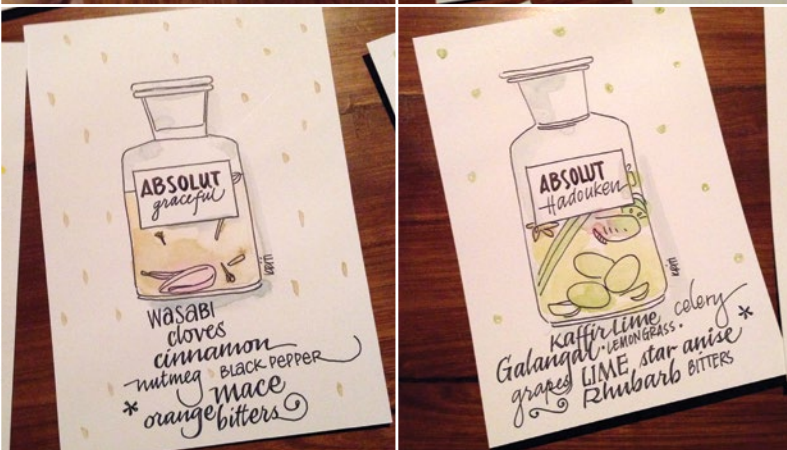 ABSOLUT
graceful
WASABI
cloves
cinnamon
nutmeg BLACK PEPPER
mace
* orange bitters
ABSOLUT
Hadouken
Kaffir Lime celery
Galangal · LEMONGRASS ·
grapes LIME star anise *
Rhubarb BITTERS